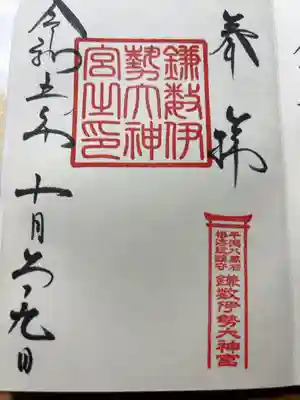 奉拝
鎌数伊
勢大神
宮之印
干潟八萬石
鎌数伊勢大神宮
令和五年十月九日